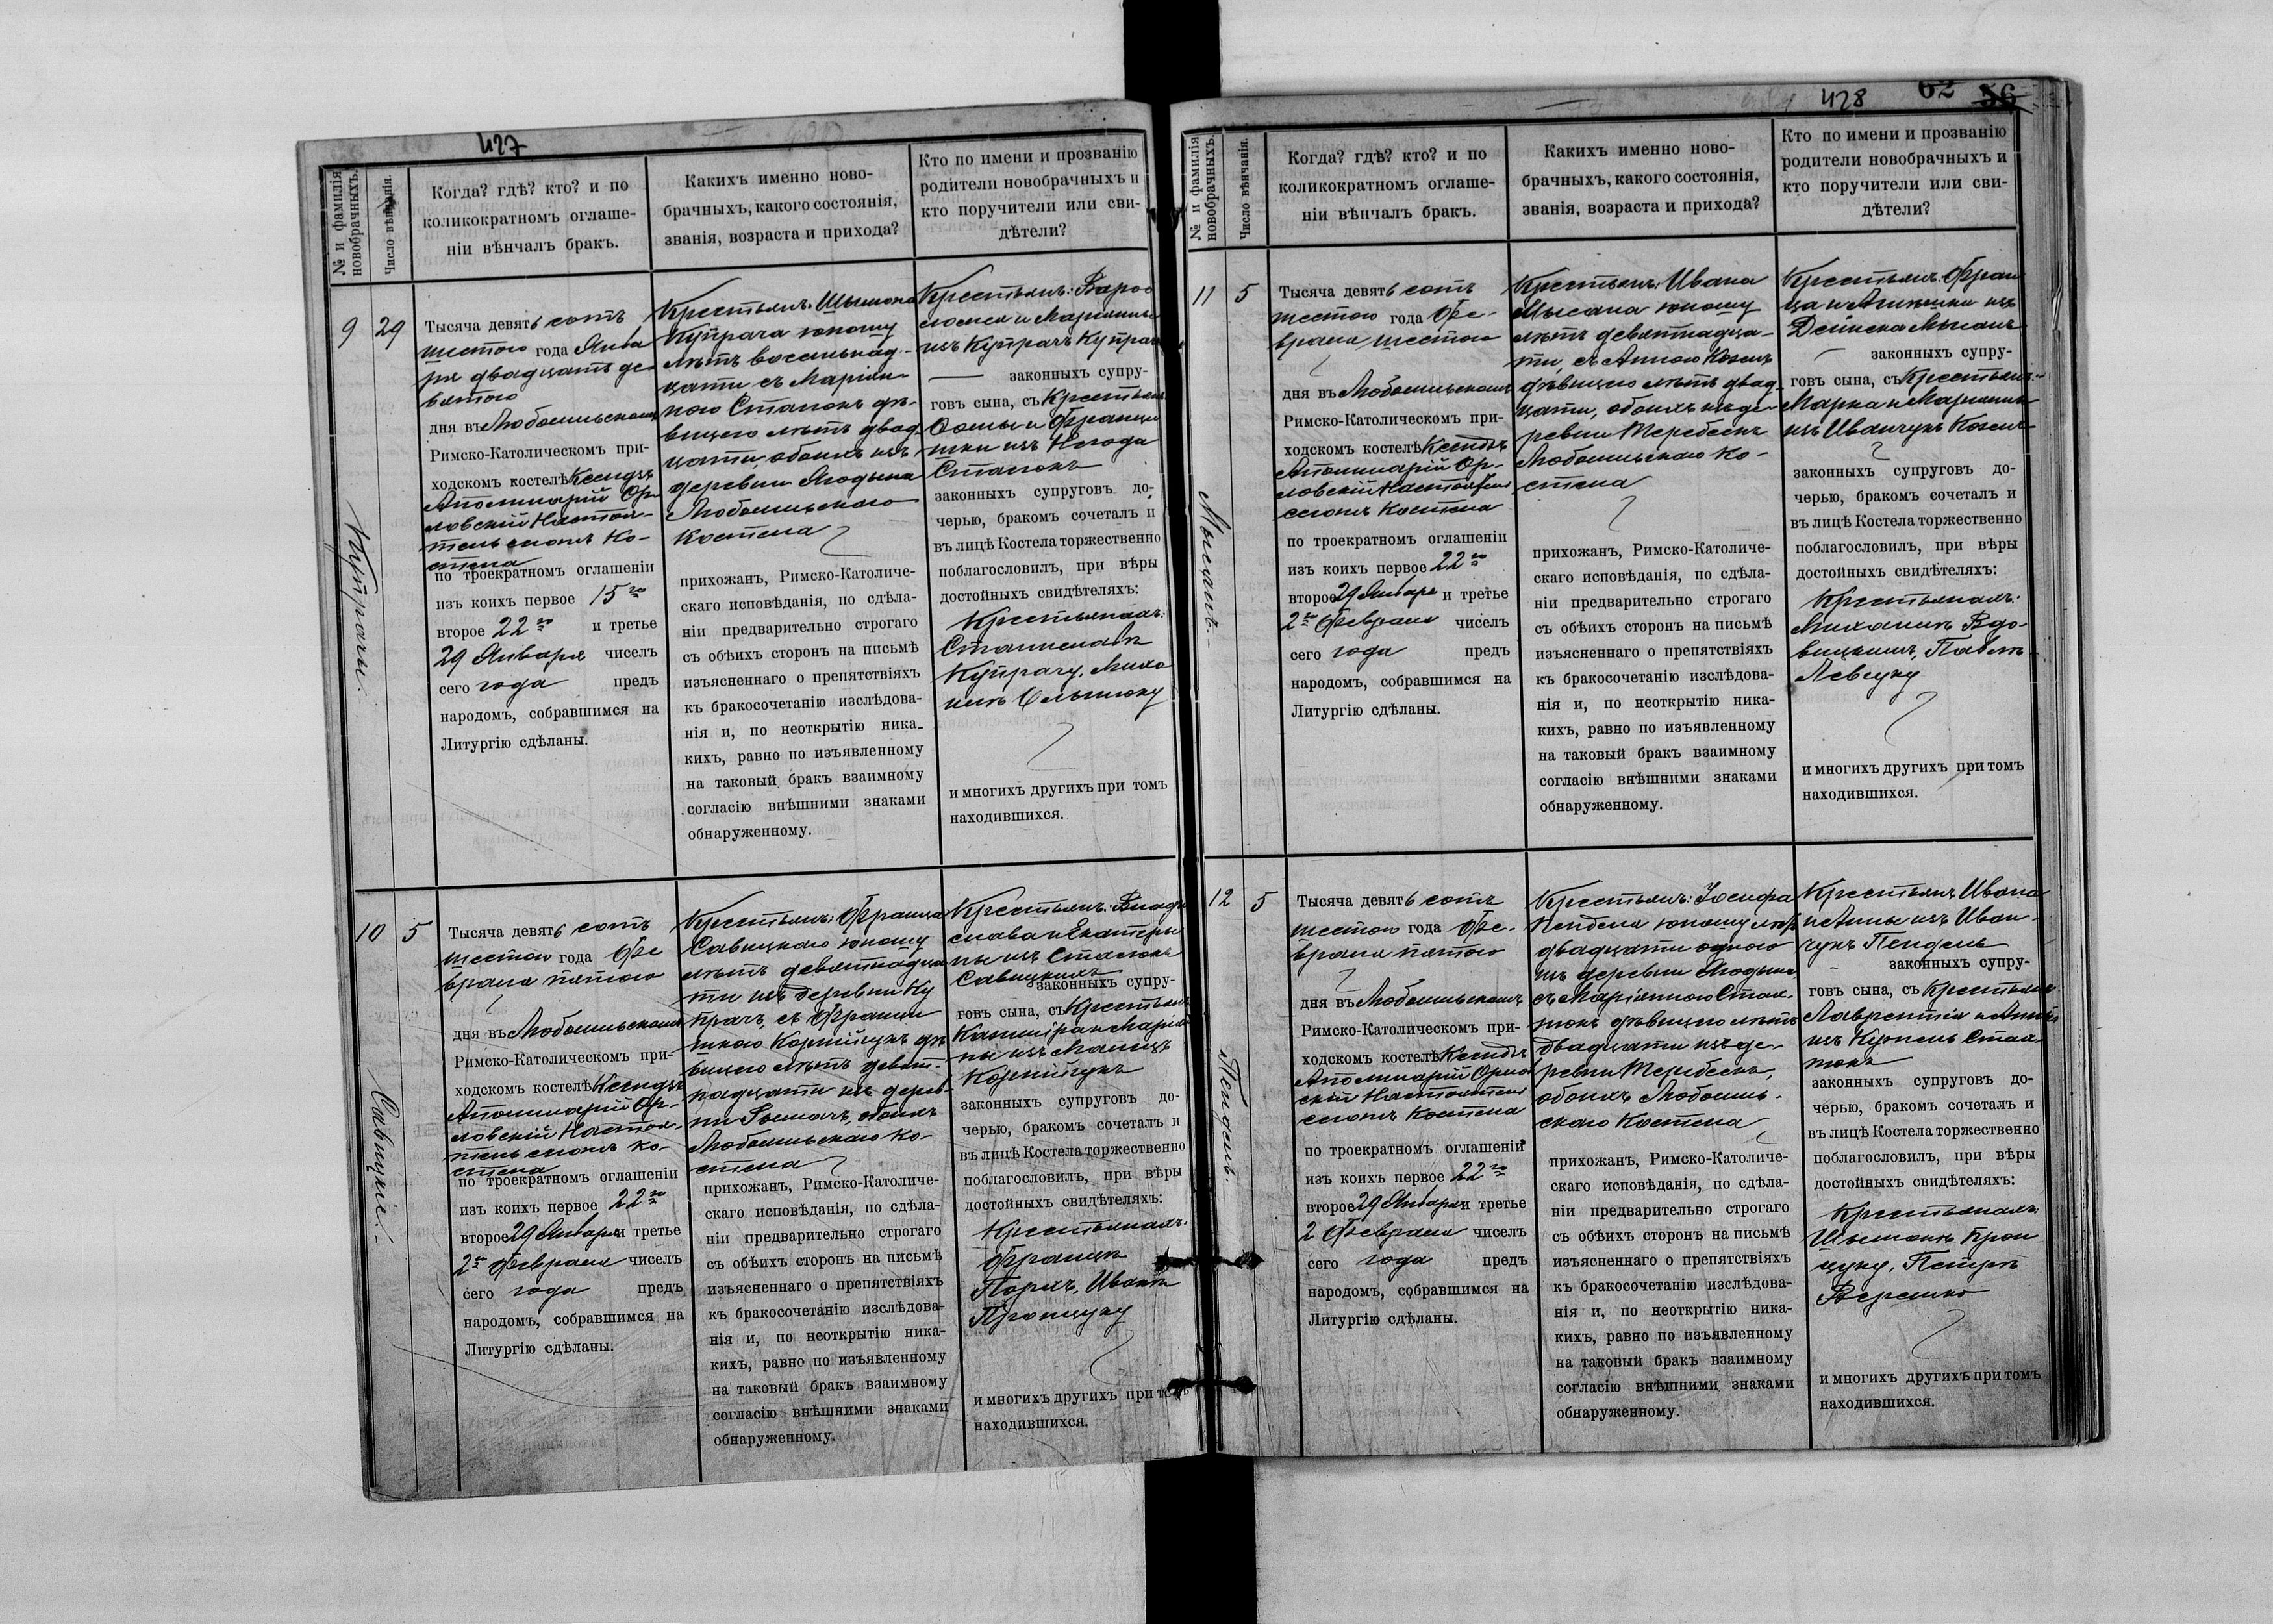 427
№ и фамилія новобрачныхъ.
Число вѣнчанія.
Когда? гдѣ? кто? и по
коликократномъ оглаше-
ніи вѣнчалъ бракъ.
Какихъ именно ново-
брачныхъ, какого состоянія,
званія, возраста и прихода?
Кто по имени и прозванію
родители новобрачныхъ и
кто поручители или сви-
дѣтели?
9
29
Купрачи.
Тысяча девятьсотъ
шестого года Янва
ря двадцать де
вятого
дня въ Любашевскомъ
Римско-Католическомъ при-
ходскомъ костелѣ Ксендзъ
Аполинарій Ор
ловскій Настоя-
тель сломъ Ко-
стела
по троекратномъ оглашеніи
изъ коихъ первое 15го
второе 22го и третье
29 Января чиселъ
сего года предъ
народомъ, собравшимся на
Литургію сдѣланы.
Крестьянъ: Шымона
Купрача юношу
лѣтъ восемнад-
цати съ Маріан-
ною Стасюкъ дѣ-
вицею лѣтъ двад
цати, обоихъ изъ
деревни Людына
Костела
прихожанъ, Римско-Католиче-
скаго исповѣданія, по сдѣла-
ніи предварительно строгаго
съ обѣихъ сторонъ на письмѣ
изъясненнаго о препятствіяхъ
къ бракосочетанію изслѣдова-
нія и, по неоткрытію ника-
кихъ, равно по изъявленному
на таковый бракъ взаимному
согласію внѣшними знаками
обнаруженному.
Крестьянъ: Варѳо
ломея и Маріанны
изъ Купрачъ Купрач
законныхъ супру-
говъ сына, съ Крестьян
Ѳомы и Францы
шки изъ
Стасюкъ
законныхъ супруговъ до-
черью, бракомъ сочеталъ и
въ лицѣ Костела торжественно
поблагословилъ, при вѣры
достойныхъ свидѣтеляхъ:
Крестьянахъ:
Станиславѣ
Купрачу, Миха
илѣ
и многихъ другихъ при томъ
находившихся.
10
5
Савицкіе.
Тысяча девятьсотъ
шестого года Фе
враля пятого
дня въ Любашевскомъ
Римско-Католическомъ при-
ходскомъ костелѣ Ксендзъ
Аполинарій Ор-
ловскій Настоя-
тель сломъ ко-
стела
по троекратномъ оглашеніи
изъ коихъ первое 22го
второе 29 Января и третье
2го Февраля чиселъ
сего года предъ
народомъ, собравшимся на
Литургію сдѣланы.
Крестьянъ: Франца
Савицкаго юношу
лѣтъ девятнадца
ти изъ деревни Ку
прачъ, съ Франци
шкою Корнійчукъ дѣ
вицею лѣтъ девят-
надцати изъ дерев
ни обоихъ
ко-
стела
прихожанъ, Римско-Католиче-
скаго исповѣданія, по сдѣла-
ніи предварительно строгаго
съ обѣихъ сторонъ на письмѣ
изъясненнаго о препятствіяхъ
къ бракосочетанію изслѣдова-
нія и, по неоткрытію ника-
кихъ, равно по изъявленному
на таковый бракъ взаимному
согласію внѣшними знаками
обнаруженному.
Крестьянъ: Влади
слава и Екатери
ны изъ Стасюкъ
Савицкихъ
законныхъ супру-
говъ сына, съ Крестьян
Казиміра и Маріан
ны изъ
Корнійчукъ
законныхъ супруговъ до-
черью, бракомъ сочеталъ и
въ лицѣ Костела торжественно
поблагословилъ, при вѣры
достойныхъ свидѣтеляхъ:
Крестьянахъ:
Францѣ
Иванѣ
и многихъ другихъ при томъ
находившихся.
428
62
56
№ и фамилія новобрачныхъ.
Число вѣнчанія.
Когда? гдѣ? кто? и по
коликократномъ оглаше-
ніи вѣнчалъ бракъ.
Какихъ именно ново-
брачныхъ, какого состоянія,
званія, возраста и прихода?
Кто по имени и прозванію
родители новобрачныхъ и
кто поручители или сви-
дѣтели?
11
5
Тысяча девятьсотъ
шестого года Фе-
враля шестого
дня въ Любашевскомъ
Римско-Католическомъ при-
ходскомъ костелѣ Ксендзъ
Аполинарій Ор-
ловскій Настоятель
сломъ Костела
по троекратномъ оглашеніи
изъ коихъ первое 22го
второе 29 Января и третье
2го Февраля чиселъ
сего года предъ
народомъ, собравшимся на
Литургію сдѣланы.
Крестьянъ: Ивана
юношу
лѣтъ девятнадца-
ти, съ Анною
дѣвицею лѣтъ двад
цати, обоихъ изъ де-
ревни Теребеекъ
ко-
стела
прихожанъ, Римско-Католиче-
скаго исповѣданія, по сдѣла-
ніи предварительно строгаго
съ обѣихъ сторонъ на письмѣ
изъясненнаго о препятствіяхъ
къ бракосочетанію изслѣдова-
нія и, по неоткрытію ника-
кихъ, равно по изъявленному
на таковый бракъ взаимному
согласію внѣшними знаками
обнаруженному.
Крестьянъ: Фран
ца и Агнешки изъ
законныхъ супру-
говъ сына, съ Крестьян.
Марка и Маріанны
изъ Иванчукъ
законныхъ супруговъ до-
черью, бракомъ сочеталъ и
въ лицѣ Костела торжественно
поблагословилъ, при вѣры
достойныхъ свидѣтеляхъ:
Крестьянахъ:
Михаилѣ Вдо-
вицкимъ, Павлѣ
Левчуку
и многихъ другихъ при томъ
находившихся.
12
5
Пендель.
Тысяча девятьсотъ
шестого года Фе-
враля пятого
дня въ Любашевскомъ
Римско-Католическомъ при-
ходскомъ костелѣ Ксендзъ
Аполинарій Орлов
скій Настоятель
сломъ Костела
по троекратномъ оглашеніи
изъ коихъ первое 22го
второе 29 Января и третье
2 Февраля чиселъ
сего года предъ
народомъ, собравшимся на
Литургію сдѣланы.
Крестьянъ: Іосифа
Пенделя юношу лѣт
двадцати одного
изъ деревни Людына
съ Маріанною Стась-
юкъ дѣвицею лѣтъ
двадцати изъ де-
ревни Теребеекъ,
обоихъ
скаго Костела
прихожанъ, Римско-Католиче-
скаго исповѣданія, по сдѣла-
ніи предварительно строгаго
съ обѣихъ сторонъ на письмѣ
изъясненнаго о препятствіяхъ
къ бракосочетанію изслѣдова-
нія и, по неоткрытію ника-
кихъ, равно по изъявленному
на таковый бракъ взаимному
согласію внѣшними знаками
обнаруженному.
Крестьянъ Ивана
и Анны изъ Иван-
чукъ Пендель
законныхъ супру-
говъ сына, съ Крестьян
Лаврентія и Анны
изъ
законныхъ супруговъ до-
черью, бракомъ сочеталъ и
въ лицѣ Костела торжественно
поблагословилъ, при вѣры
достойныхъ свидѣтеляхъ:
Крестьянахъ:
Шымонѣ
Петрѣ
и многихъ другихъ при томъ
находившихся.